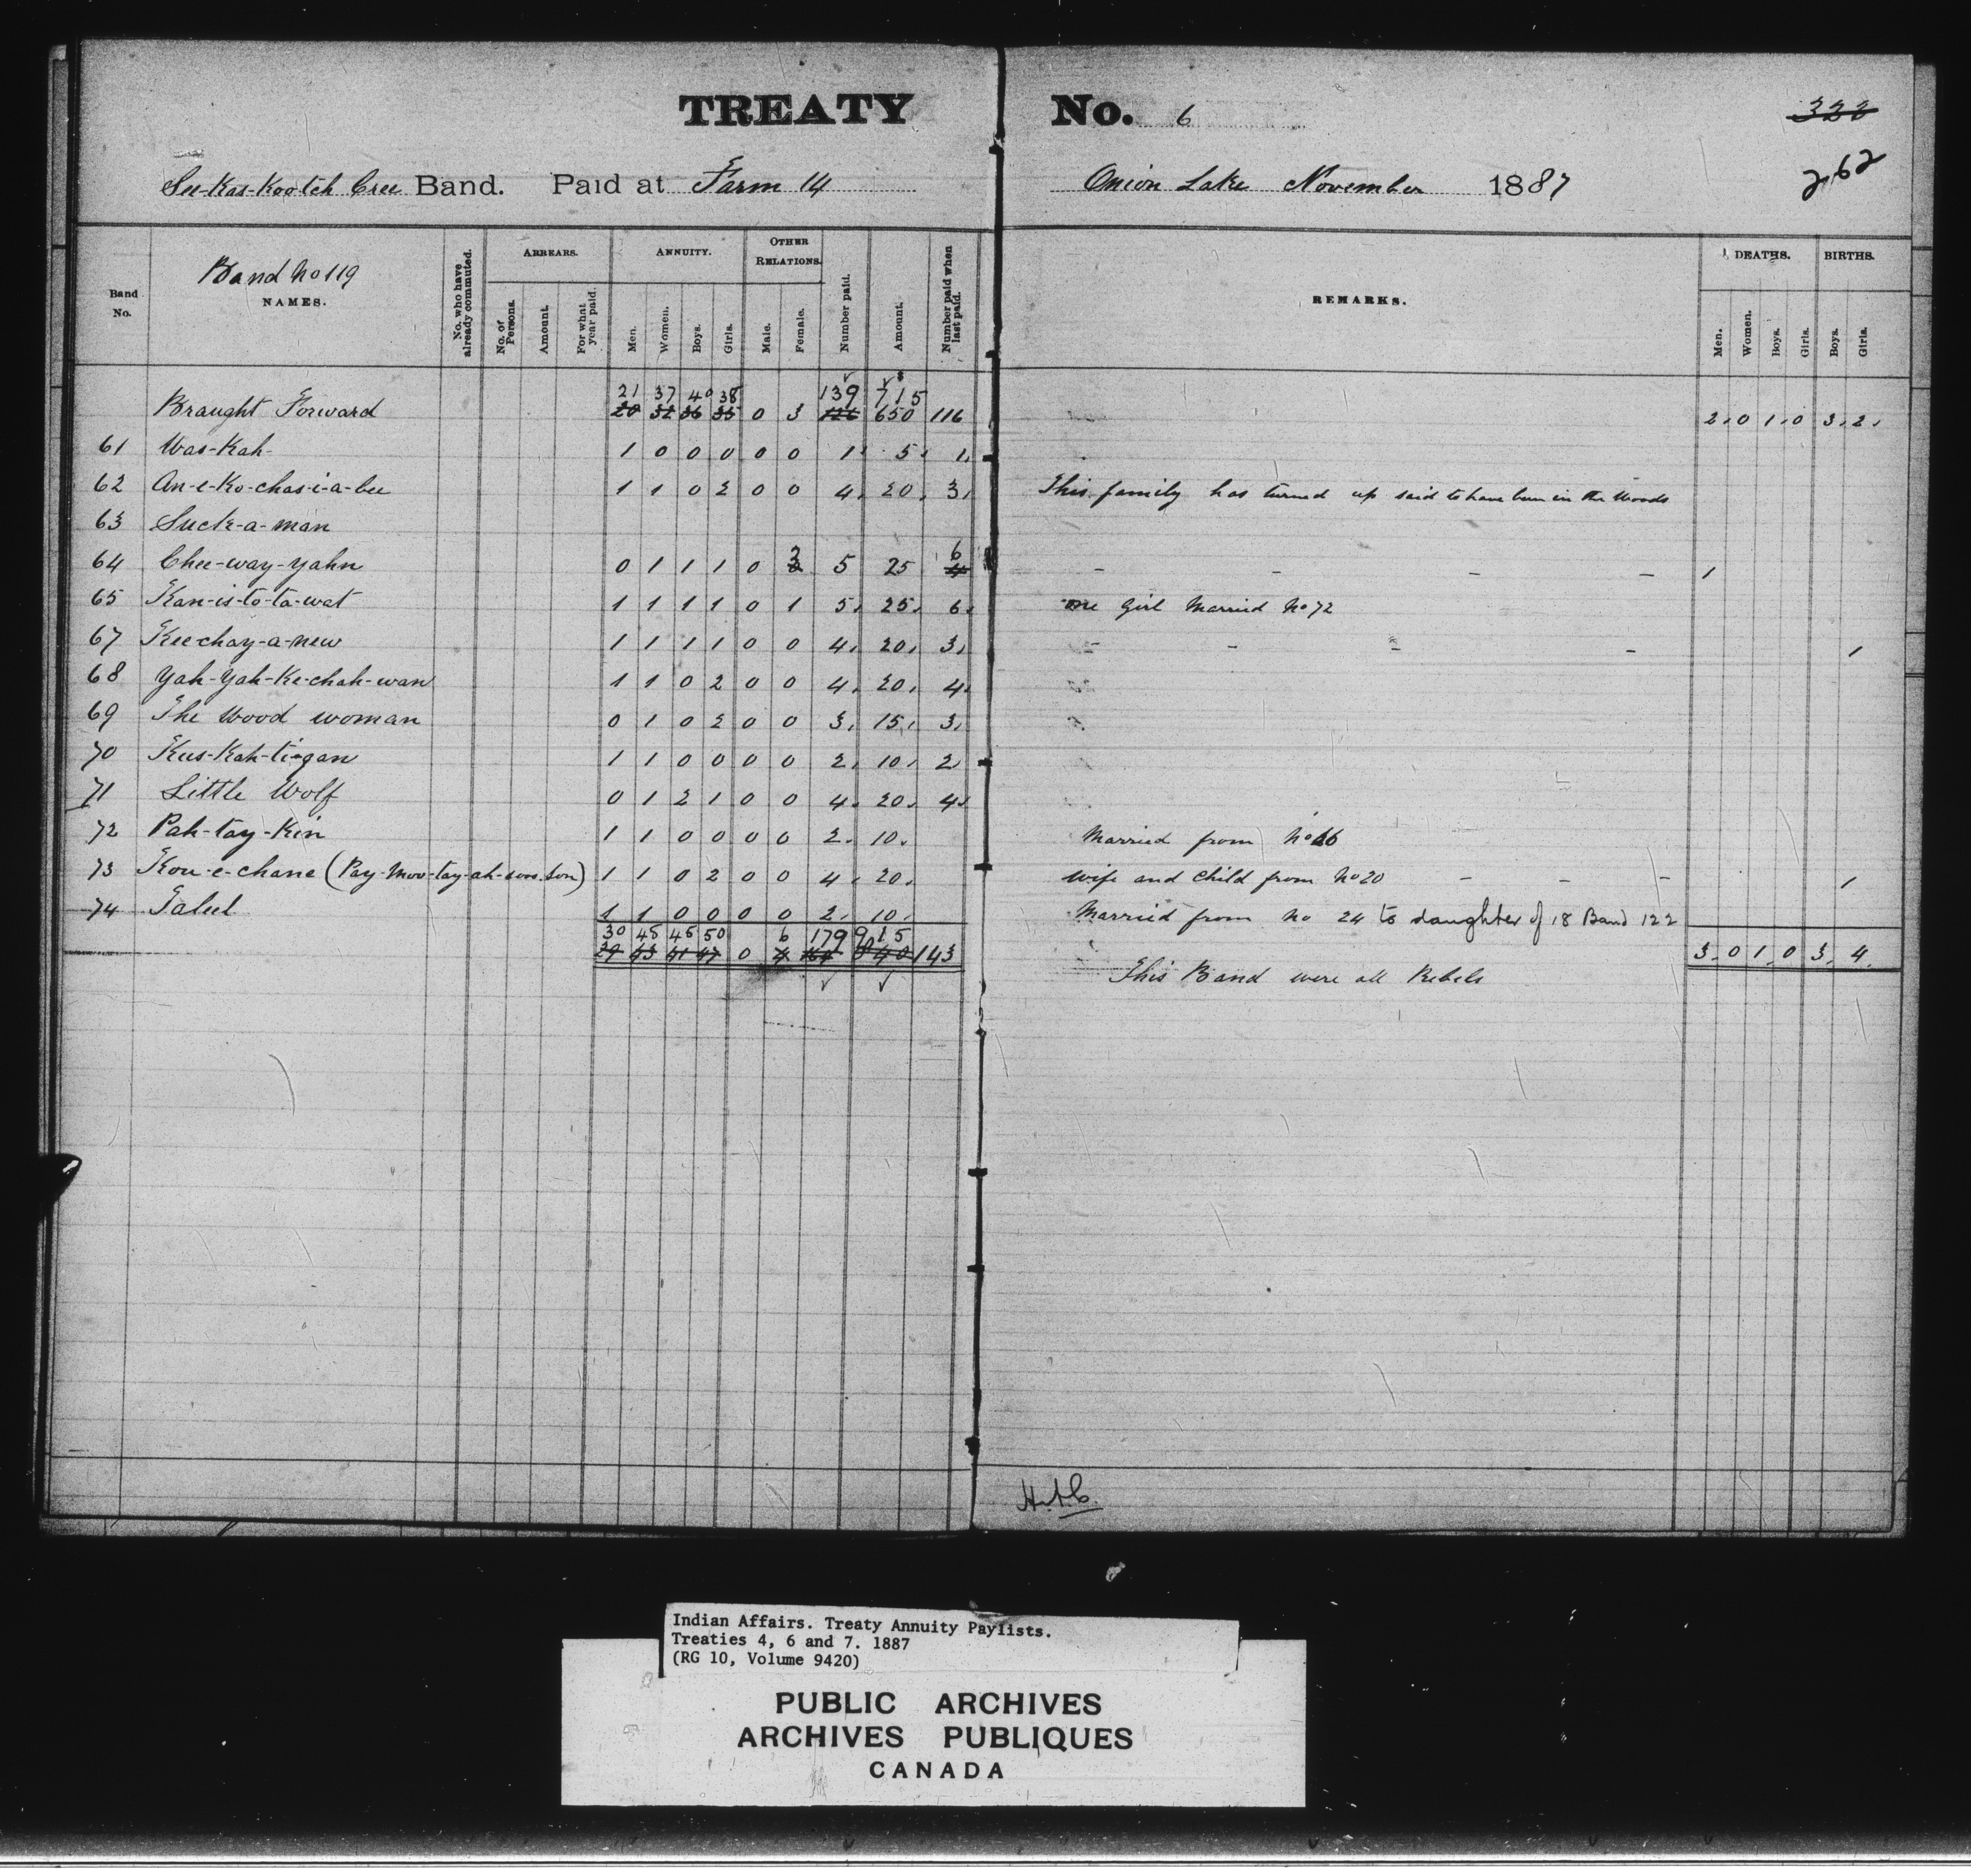 TREATY No. 6
322
262
See-Kas-Kootch Cree Band. Paid at Farm 14 Onion Lake November 1887
Band No. Band No 119 NAMES. No. who have already commuted. ARREARS. No. of Persons. Amount. For what year paid. ANNUITY. Men. Women. Boys. Girls. OTHER RELATIONS. Male. Female. Number paid. Amount. Number paid when last paid. REMARKS. DEATHS. Men. Women. Boys. Girls. BIRTHS. Boys. Girls.
21 37 40 38 139 715
Braught Forward 20 32 36 35 0 3 126 650 116 2. 0 1. 0 3. 2.
61 Was-Kah- 1 0 0 0 0 0 1. 5. 1.
62 An-e-Ko-chas-i-a-bee 1 1 0 2 0 0 4. 20. 3. This family has turned up said to have been in the Woods
63 Suck-a-man
64 Chee-way-yahn 0 1 1 1 0 2 5 25 6 4 - - - - 1
65 Kan-is-to-ta-wat 1 1 1 1 0 1 5. 25. 6. one Girl Married No 72
67 Kee-chay-a-new 1 1 1 1 0 0 4. 20. 3. - - - - 1
68 Yah-Yah-Ke-chah-wan 1 1 0 2 0 0 4. 20. 4.
69 The Wood woman 0 1 0 2 0 0 3. 15. 3.
70 Kus-Kah-ti-gan 1 1 0 0 0 0 2. 10. 2
71 Little Wolf 0 1 2 1 0 0 4. 20. 4.
72 Pah-tay-Kin 1 1 0 0 0 0 2. 10. Married from No 66
73 Kou-e-chane (Pay-Moo-tay-ah-soos son) 1 1 0 2 0 0 4. 20. Wife and Child from No 20 - - - 1
74 1 1 0 0 0 0 2. 10. Married from No 24 to daughter of 18 Band 122
30 45 45 50 6 179 915
29 43 41 47 0 4 840 143 3. 0 1. 0 3. 4.
This Band were all Rebels
Indian Affairs. Treaty Annuity Paylists.
Treaties 4, 6 and 7. 1887
(RG 10, Volume 9420)
PUBLIC ARCHIVES
ARCHIVES PUBLIQUES
CANADA